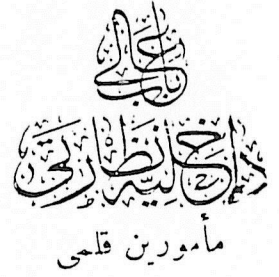 باب عالی
داخلیه نظارتی
مأمورین قلمی